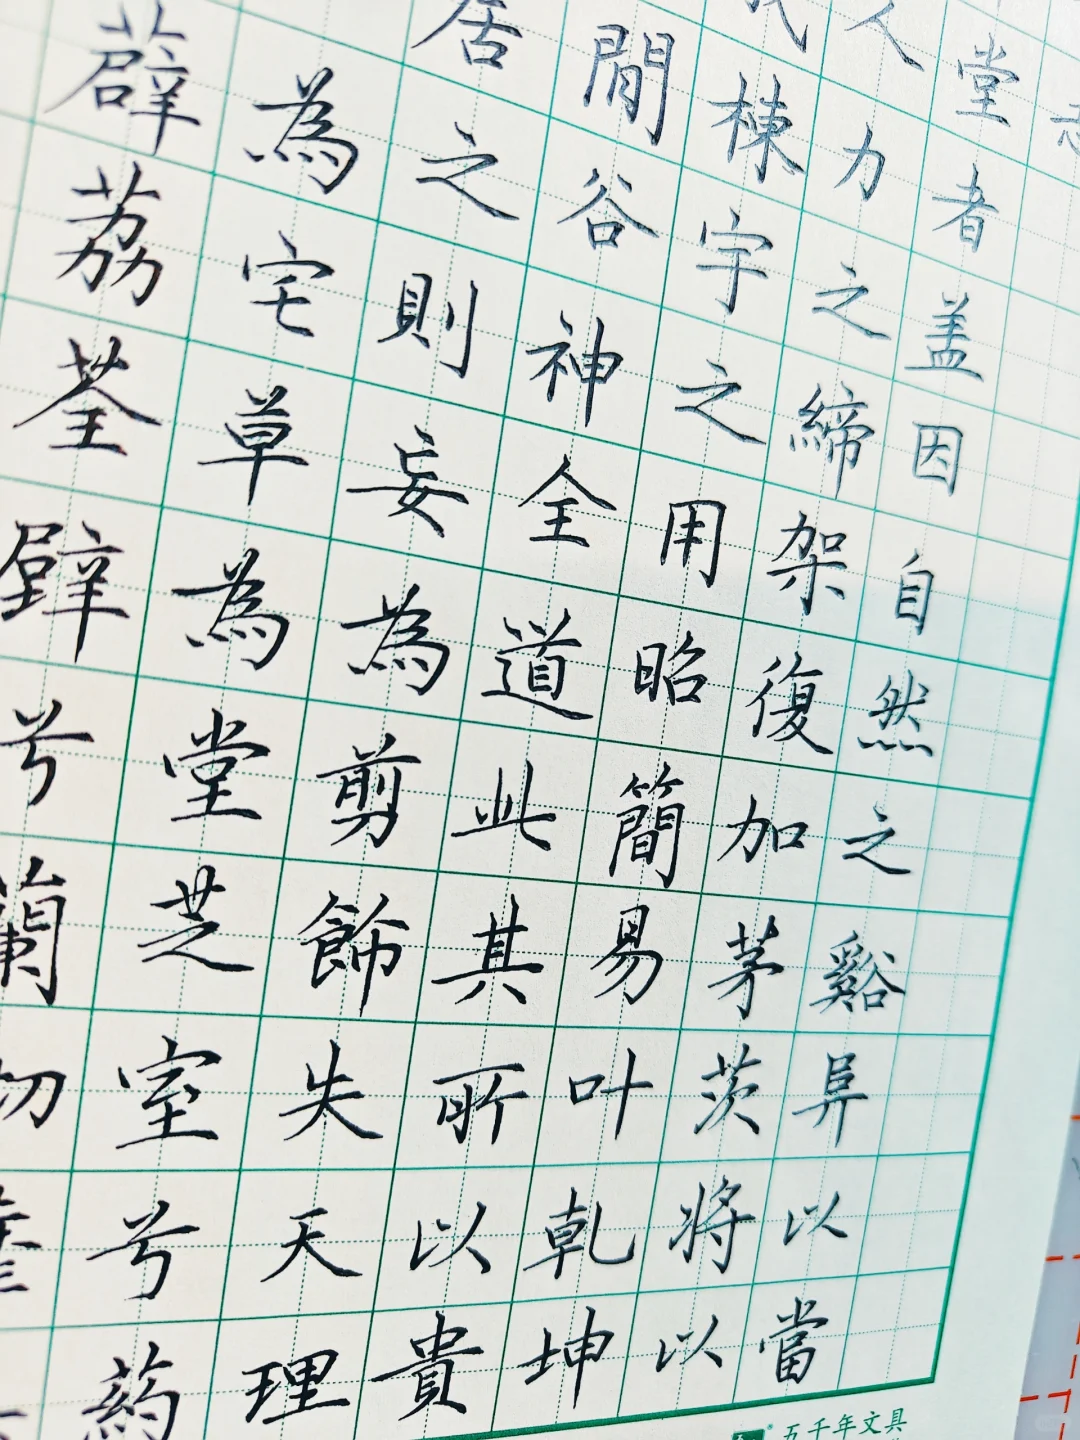 堂者盖因自然之谿阜以當
人力之締架復加茅茨將以
棟宇之用昭簡易叶乾坤
閒谷神全道此其所以貴
居之則妄為剪飾失天理
為宅草為堂芝室兮葯
薜荔荃壁兮蘭
五千年文具